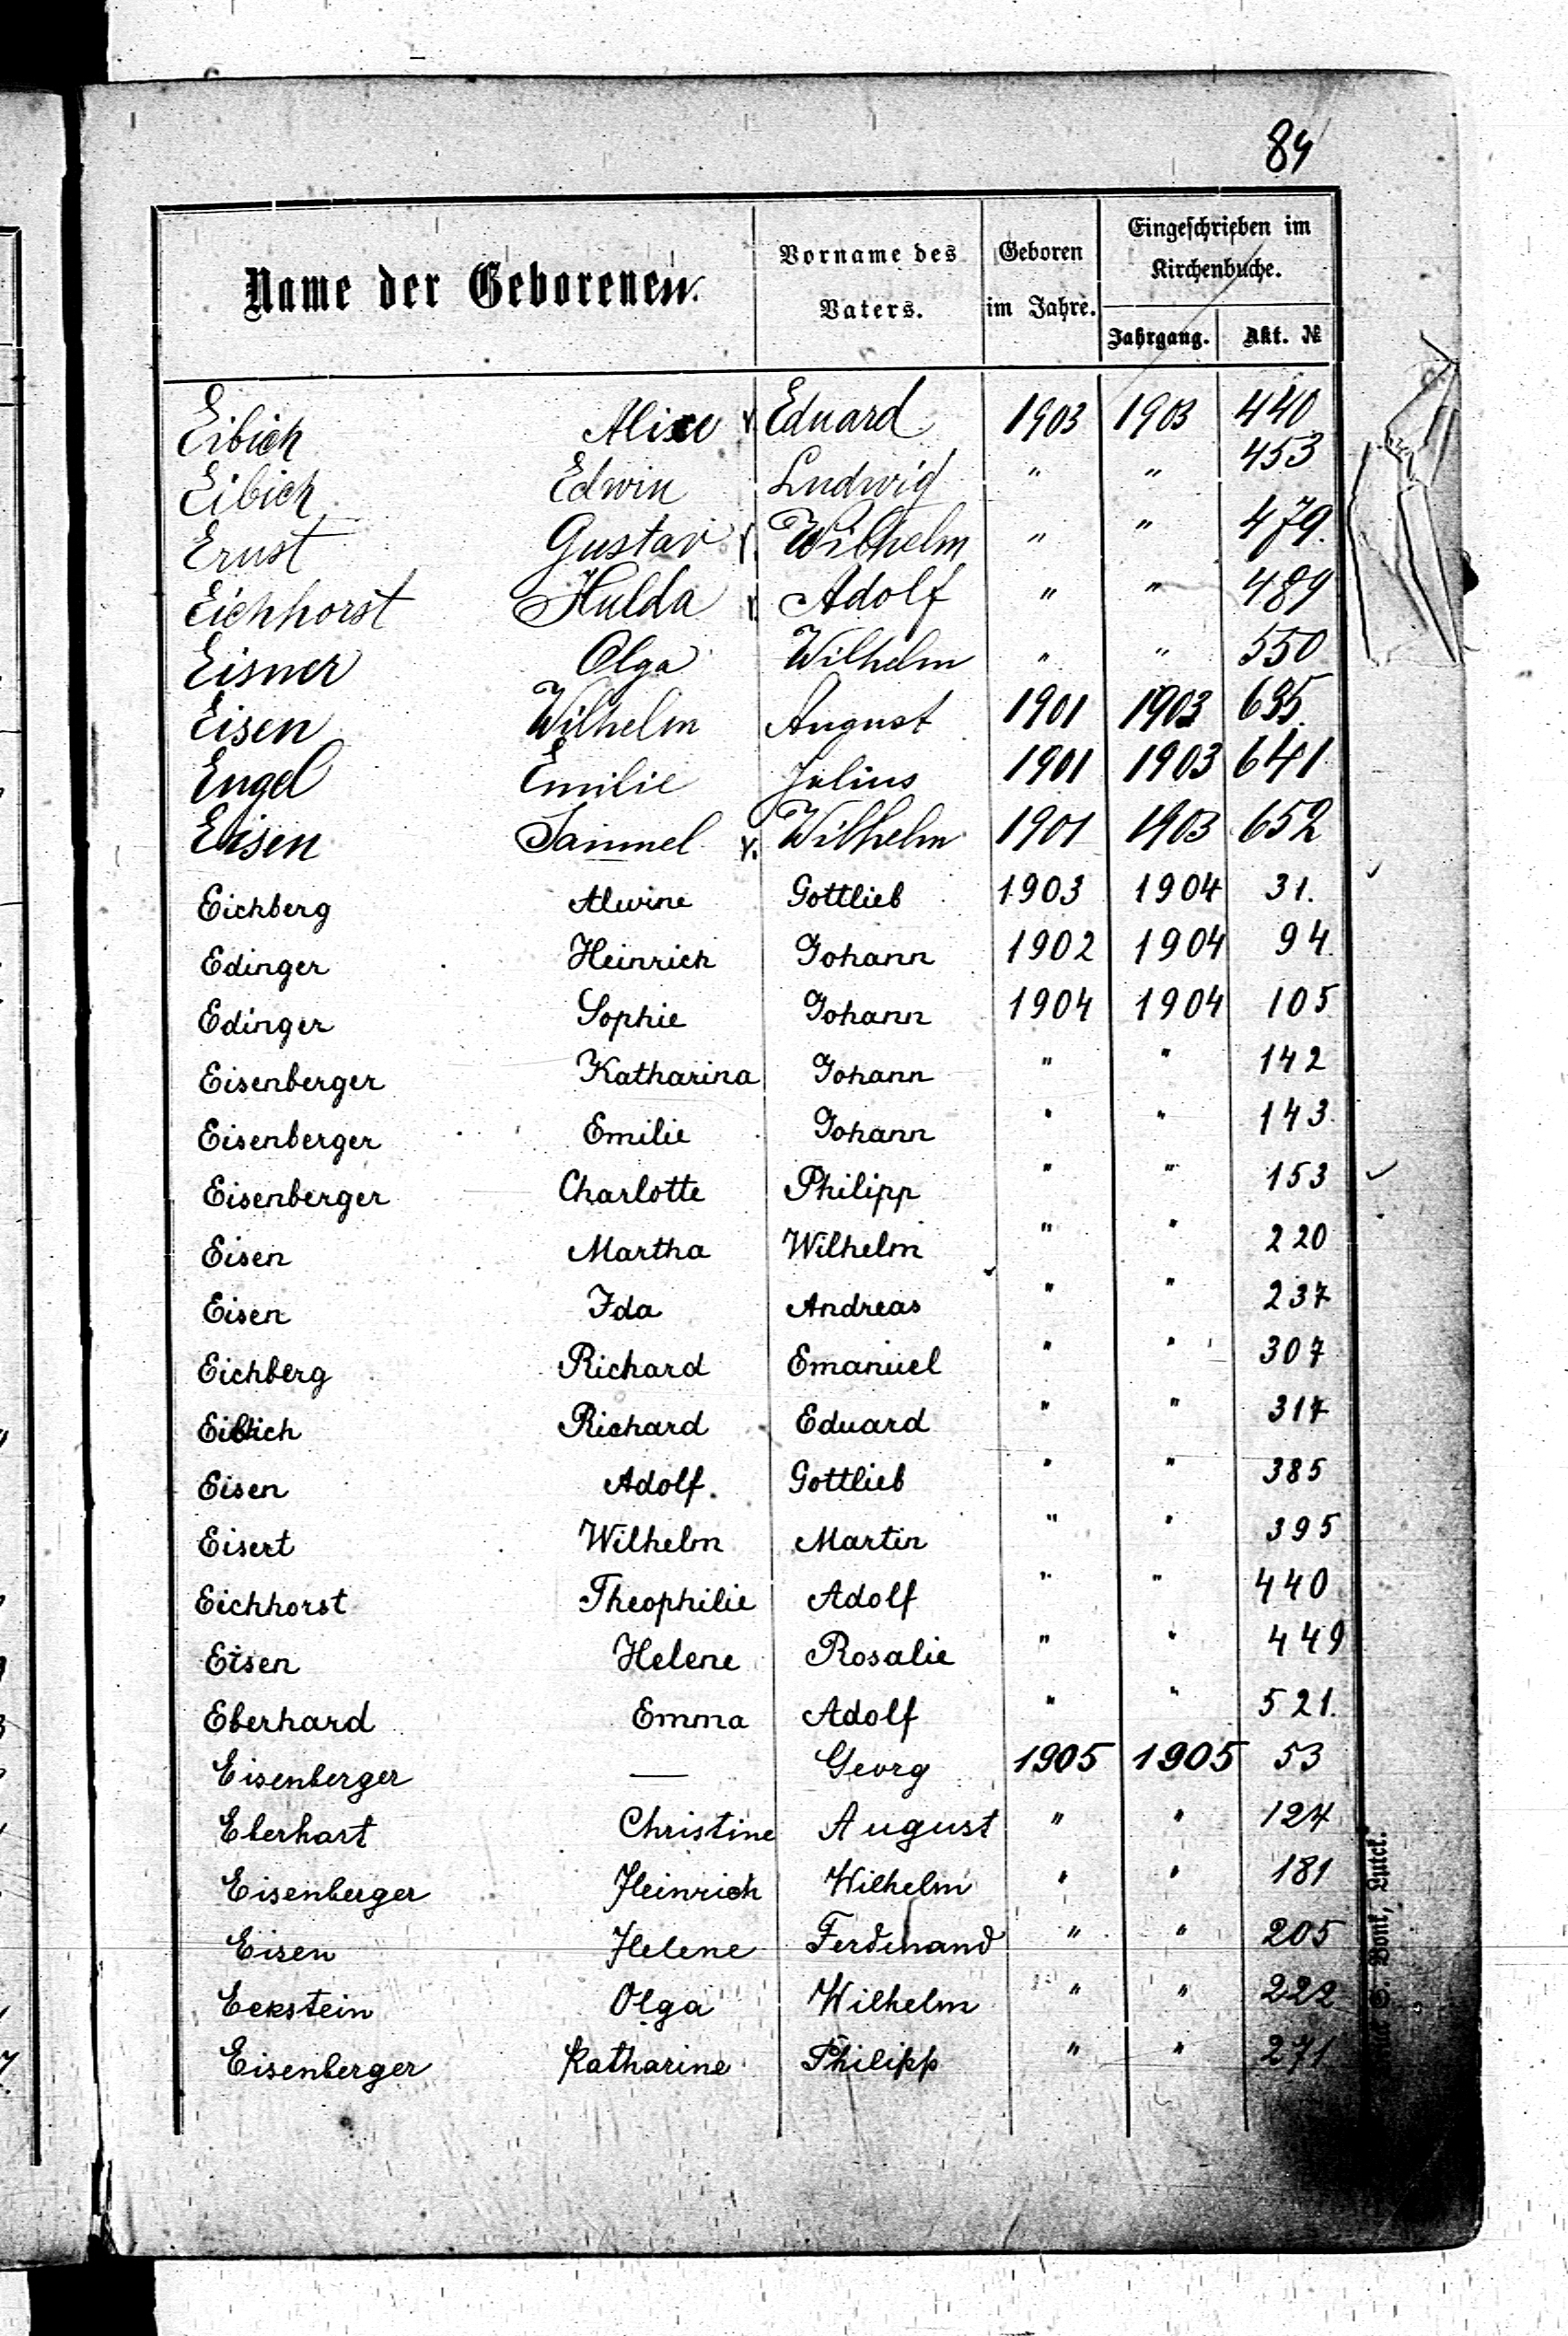 84
Name der Geborenen.
Vorname des Vaters.
Geboren im Jahre.
Eingeschrieben im Kirchenbuche.
Jahrgang. Akt. №
Eibich Alice v. Eduard 1903 1903 440
Eibich Edwin Ludwig " " 453
Ernst Gustav v. Wilhelm " " 479.
Eichhorst Hulda v. Adolf " " 489
Eisner Olga Wilhelm " " 550
Eisen Wilhelm August 1901 1903 635.
Engel Emilie Julius 1901 1903 641
Eisen Samuel v. Wilhelm 1901 1903 652
Eichberg Alwine Gottlieb 1903 1904 31.
Edinger Heinrich Johann 1902 1904 94
Edinger Sophie Johann 1904 1904 105
Eisenberger Katharina Johann " " 142
Eisenberger Emilie Johann " " 143.
Eisenberger Charlotte Philipp " " 153
Eisen Martha Wilhelm " " 220
Eisen Ida Andreas " " 237
Eichberg Richard Emanuel " " 307
Eibich Richard Eduard " " 317
Eisen Adolf. Gottlieb " " 385
Eisert Wilhelm Martin " " 395
Eichhorst Theophilie Adolf " " 440
Eisen Helene Rosalie " " 449
Eberhard Emma Adolf " " 521.
Eisenberger — Georg 1905 1905 53
Eberhart Christine August " " 124
Eisenberger Heinrich Wilhelm " " 181
Eisen Helene Ferdinand " " 205
Eckstein Olga Wilhelm " " 222
Eisenberger Katharine Philipp " " 271